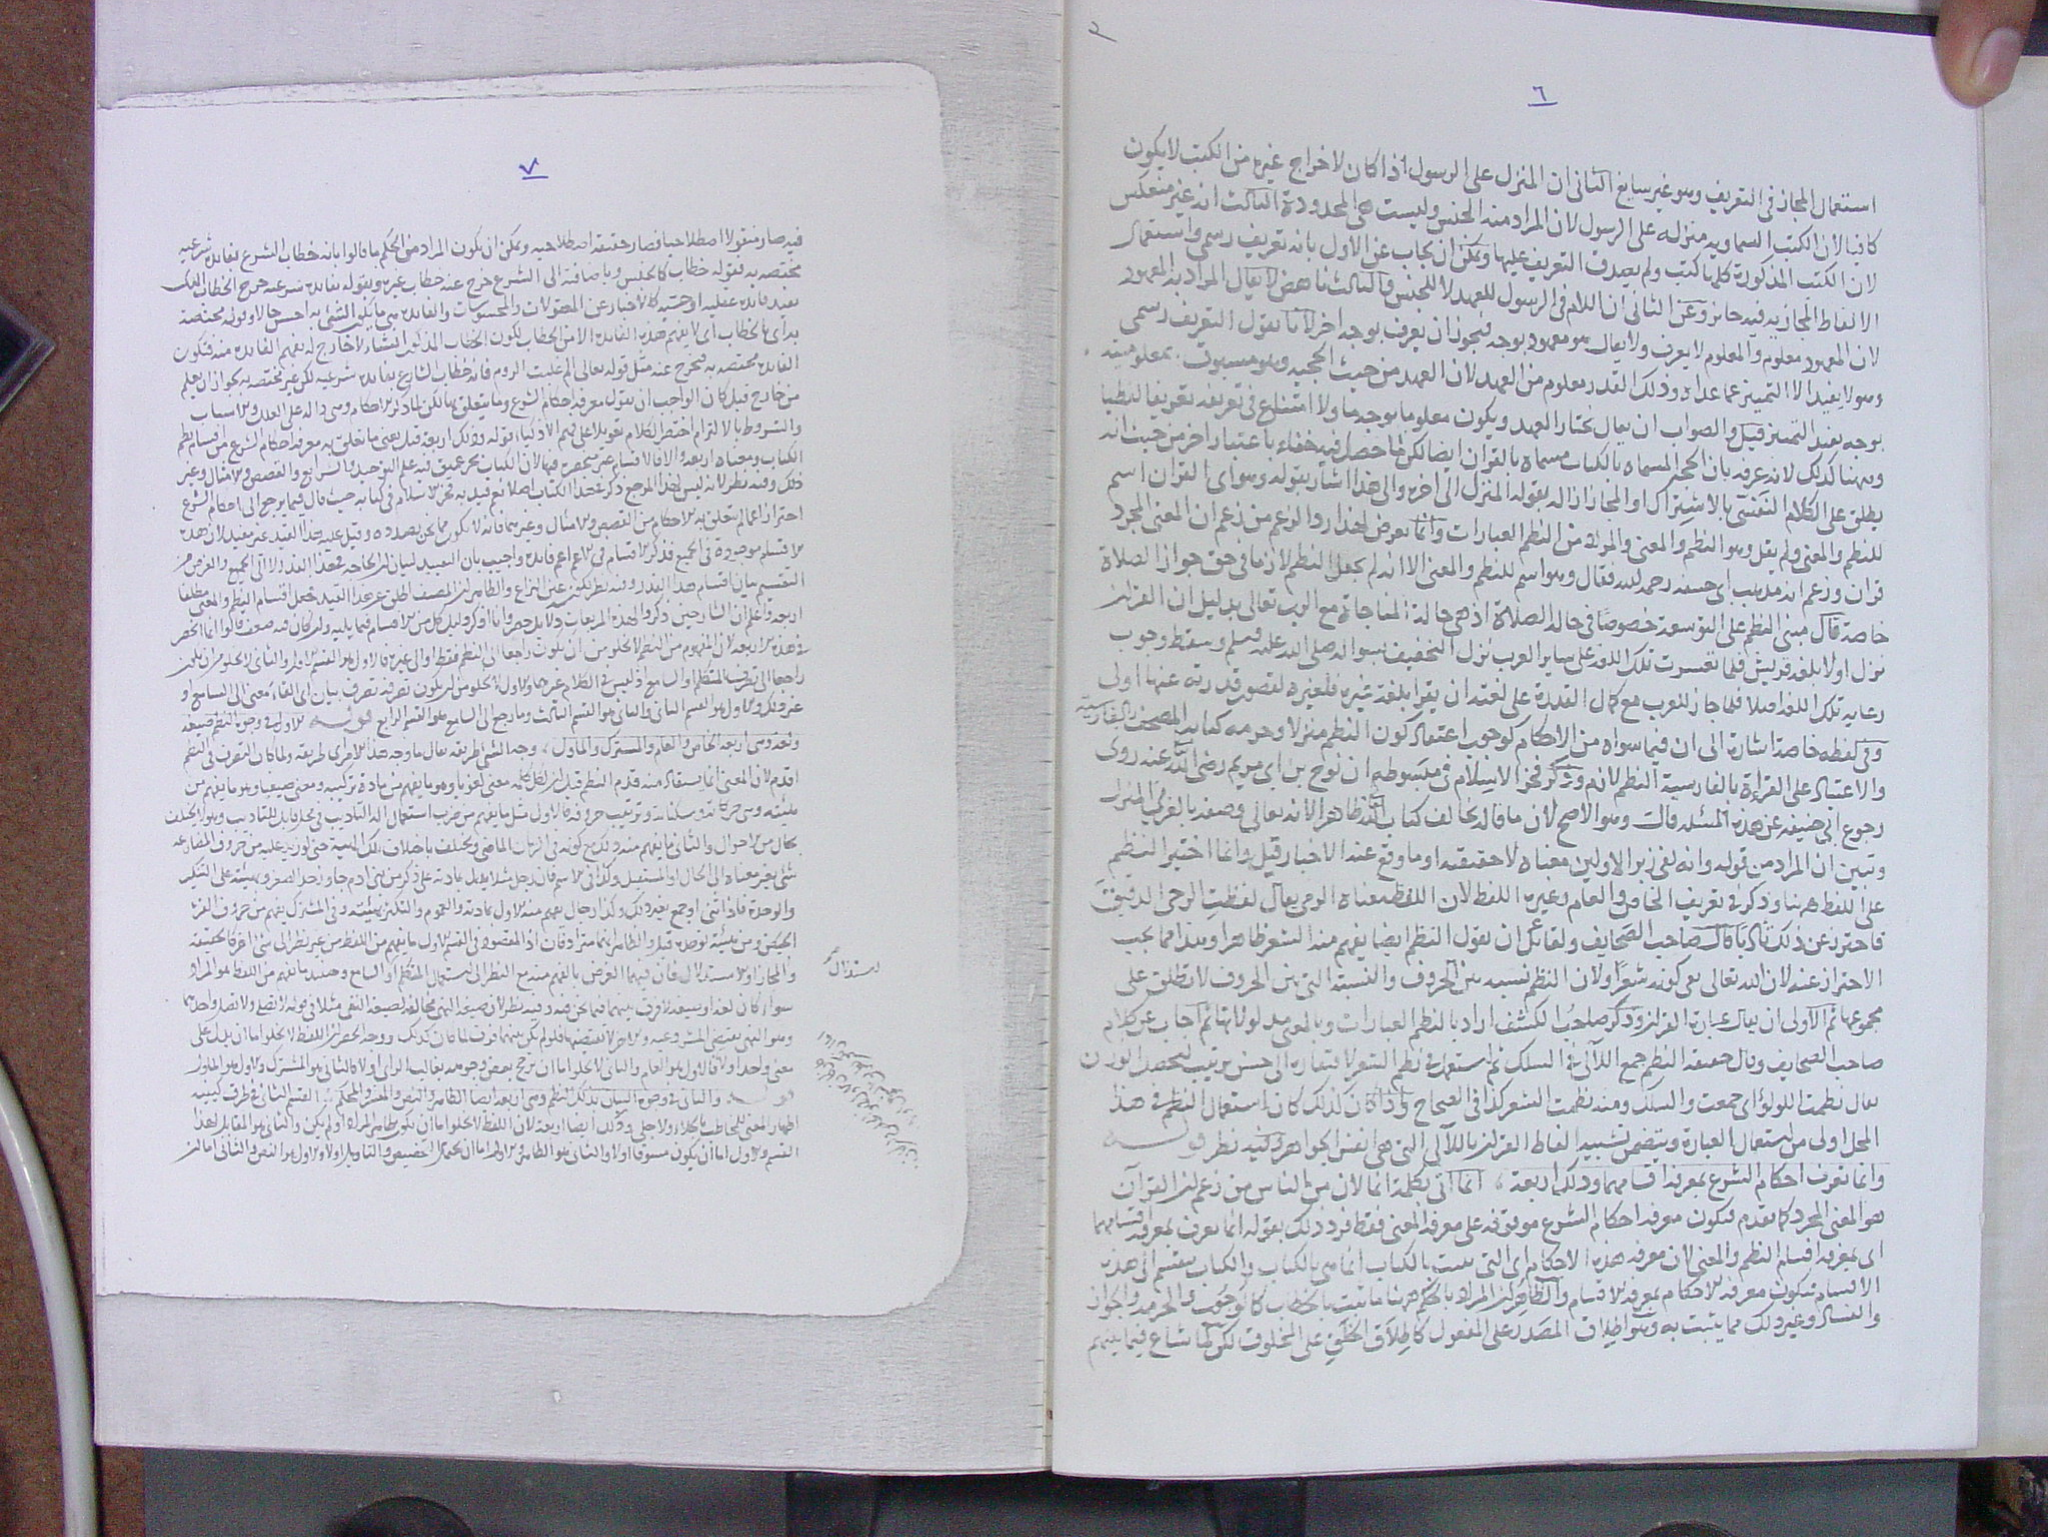 ٦
استعمال المجاز فى التعريف وهو غير سايغ الثانى ان المنزل على الرسول اذا كان لاخراج غيره من الكتب لا يكون
كافيا لان الكتب السماوية منزله على الرسول لان المراد منه الجنس وليست هى المحدودة الثالث انه غير منعكس
لان الكتب المذكورة كلها كتب ولم يصدق التعريف عليها ويمكن ان يجاب عن الاول بانه تعريف رسمى واستعمال
الالفاظ المجازية فيه جائز وعن الثانى ان اللام فى الرسول للعهد لا للجنس والثالث ناهض لا يقال المراد به المعهود
لان المعهود معلوم والمعلوم لا يعرف ولا يقال هو معهود بوجه فيجوز ان يعرف بوجه اخر لانا نقول التعريف رسمى
وهو لا يفيد الا التمييز عما عداه وذلك القدر معلوم من العهد لان العهد من حيث الحجيه وهو مسبوق بمعلوميته
بوجه يفيد التمييز قيل والصواب ان يقال نختار العهد ويكون معلوما بوجه ما ولا امتناع فى تعريفه تعريفا لفظيا
وههنا كذلك لانه عرفه بان الحجج المسماه بالكتاب مسماة بالقران ايضا لكن لما حصل فيه خفاء باعتبار اخر من حيث انه
يطلق على الكلام النفسى بالاشتراك او المجاز ازاله بقوله المنزل الى اخره والى هذا اشار بقوله وهو اى القران اسم
للنظم والمعنى ولم يقل وهو النظم والمعنى والمراد من النظم العبارات وانما تعرض لهذا رد الزعم من زعم ان المعنى المجرد
قران وزعم انه مذهب ابى حنيفه رحمه لله فقال وهو اسم للنظم والمعنى الا انه لم يجعل النظم لازما فى حق جواز الصلاة
خاصة قال مبنى النظم على التوسعة خصوصا فى حالة الصلاة اذ هى حالة المناجاة مع الرب تعالى بدليل ان القران
نزل اولا بلغة قريش فلما تعسرت تلك اللغة على ساير العرب نزل التخفيف بسواله صلى الله عليه وسلم وسقط وجوب
رعاية تلك اللغة اصلا فلما جاز للعرب مع كمال القدرة على لغته ان يقرا بلغة غيره فلغيره لقصور قدرته عنها اولى
وفى لفظه خاصة اشارة الى ان فيما سواه من الاحكام كوجوب اعتقاد كون النظم منزلا وحرمه كتابه المصحف بالفارسيه
والاعتياد على القراءة بالفارسية النظم لازم وذكر فخر الاسلام فى مبسوطه ان نوح بن ابى مريم رضى الله عنه روى
رجوع ابى حنيفه عن هذه المسئله قال وهو الاصح لان ما قاله يخالف كتاب الله ظاهرا لانه تعالى وصفه بالعربى المنزل
وتبين ان المراد من قوله وانه لفى زبر الاولين معناه لا حقيقته او ما وقع عند الاخبار قيل وانما اختير النظم
على اللفظ ههنا وذكر فى تعريف الخاص والعام وغيره اللفظ لان اللفظ معناه الرمى يقال لفظت الرحى الدقيق
فاحترز عن ذلك تادبا قال صاحب الصحايف ولقائل ان يقول النظم ايضا يفهم منه الشعر ظاهرا وهذا مما يجب
الاحتراز عنه لان لله تعالى نفى كونه شعرا ولان النظم نسبه بين الحروف والنسبة التى بين الحروف لا تطلق على
مجموعها ثم الاولى ان يقال عبارة القران وذكر صاحب الكشف اراد بالنظم العبارات وبالمعنى مدلولاتها ثم اجاب عن كلام
صاحب الصحايف وقال حقيقة النظم جمع اللآلى فى السلك ثم استعمله فى نظم الشعر لافتقاره الى حسن ترتيب لتحصل الوزن
يقال نظمت اللولؤ اى جمعت والسلك ومنه نظمت الشعر كذا فى الصحاح واذا كان كذلك كان استعمال النظم فى هذا
المحل اولى من استعمال العبارة ويتضمن تشبيه الفاظ القران باللآلى التى هى انفس الجواهر وفيه نظر قوله
وانما تعرف احكام الشرع بمعرفة اقسامهما وذلك اربعة ، انما اتى بكلمة انما لان من الناس من زعم ان القرآن
هو المعنى المجرد كما تقدم فتكون معرفه احكام الشرع موقوفه على معرفة المعنى فقط فرد ذلك بقوله انما تعرف بمعرفة اقسامهما
اى بمعرفة اقسام النظم والمعنى لان معرفه هذه الاحكام اى التى ثبتت بالكتاب انما هى بالكتاب والكتاب ينقسم الى هذه
الاقسام فتكون معرفه الاحكام بمعرفة الاقسام والظاهر ان المراد بالحكم ههنا ما ثبت بالخطاب كالوجوب والحرمة والجواز
والفساد وغير ذلك مما يثبت به وهو اطلاق المصدر على المفعول كاطلاق الخلق على المخلوق لكن لما شاع فيما بينهم
٧
فيه صار منقولا اصطلاحيا فصار حقيقة اصطلاحيه ويمكن ان يكون المراد من الحكم ما قالوا بانه خطاب الشرع بفائدة شرعيه
مختصه به فقوله خطاب كالجنس وباضافته الى الشرع خرج عنه خطاب غيره وبقوله بفائدة شرعيه خرج الخطاب الذى
يفيد فايدة عقليه او حسيه كالاخبار عن المعقولات والمحسوسات والفائدة هى ما يكون الشئ به احسن حالا وقوله مختصة
به اى بالخطاب اى لا يفهم هذه الفائدة الا من الخطاب لكون الخطاب المذكور انشاء لا خارج له يفهم الفائدة منه فتكون
الفائدة مختصه به فخرج عنه مثل قوله تعالى الم غلبت الروم فانه خطاب الشارع بفائدة شرعيه لكن غير مختصه به لجواز ان يعلم
من خارج قيل كان الواجب ان يقول معرفة احكام الشرع وما يتعلق بها لكن لما ذكر الاحكام وهى دالة على العلل والاسباب
والشروط بالالتزام اختصر الكلام تعويلا على فهم الاذكياء قوله وذلك اربعة قيل يعنى ما يتعلق به معرفة احكام الشرع من اقسام نظم
الكتاب ومعناه اربعة والا فالاقسام غير منحصرة فيها لان الكتاب بحر عميق فيه علم التوحيد والشرايع والقصص والامثال وغير
ذلك وفيه نظر لانه ليس لهذا المرجع ذكر فى هذا الكتاب اصلا نعم قيد به فخر الاسلام فى كتابه حيث قال فيما يرجع الى احكام الشرع
احترازا عما لم يتعلق به الاحكام من القصص والامثال وغيرهما فانه لا يكون مما نحن بصدده وقيل عليه هذا القيد غير مفيد لان هذه
الاقسام موجودة فى الجميع فذكر الاقسام فى الاعم اعم فايدة واجيب بان التقييد لبيان ان الحاجه فى هذا القدر لا الى الجميع والغرض من
التقسيم بيان اقسام هذا القدر وفيه نظر لكونه عين النزاع والظاهر ان المصنف اطلق عن هذا القيد فجعل اقسام النظم والمعنى مطلقا
اربعة واعلم ان الشارحين ذكروا لهذه المربعات دلايل حصر وانا اذكر دليل كل من الاقسام فيما يليه وان كان فيه ضعف قالوا انما انحصر
فى هذه الاربعة لان المفهوم من النظم لا يخلو من ان يكون راجعا الى النظم فقط او الى غيره فالاول هو القسم الاول والثانى لا يخلو من ان يكون
راجعا الى تصرف المتكلم او السامع اذ ليس فى الكلام غيرهما والاول لا يخلو من ان يكون تصرفه تصرف بيان اى القاء معنى الى السامع او
غير ذلك والاول هو القسم الثانى والثانى هو القسم الثالث وما رجع الى السامع هو القسم الرابع قوله الاول فى وجوه النظم صيغة
ولغة وهى اربعة الخاص والعام والمشترك والماول ، وجه الشئ طريقه يقال ما وجه هذا الامر اى طريقه ولما كان التصرف فى النظم
اقدم لان المعنى انما يستفاد منه قدم النظم قيل ان لكل كلمة معنى لغويا وهو ما يفهم من مادة تركيبه ومعنى صيغيا وهو ما يفهم من
هيئته وهى حركاته وسكناته وترتيب حروفه فالاول مثل ما يفهم من ضرب استعمال الة التاديب فى محل قابل للتاديب وهو لا يختلف
بحال من الاحوال والثانى ما يفهم منه وذلك مع كونه فى الزمان الماضى ويختلف باختلاف تلك الهيئة حتى لو زيد عليه من حروف المضارعه
شئ يغير معناه الى الحال او المستقبل وكذا فى الاسم فان رجل مثلا يدل بمادته على ذكر من بنى ادم جاوز حد الصغر وبهيئته على التنكير
والوحدة فاذا ثنى او جمع تغير ذلك وكذا رجال يفهم منه الاول بمادته والعموم والتنكير بهيئته وفى المشترك يفهم من حروف القرء
الحيض ومن هيئته لوصفه قيل والظاهر انهما مترادفان اذ المقصود فى القسم الاول ما يفهم من اللفظ من غير نظر الى شئ اخر كالحقيقه
والمجاز او الاستدلال فان فيهما الغرض ما يفهم منه مع النظر الى استعمال المتكلم او السامع وحينئذ ما يفهم من اللفظ هو المراد
سواء كان لغة او صيغة لا فرق بينهما فيما نحن فيه وفيه نظر لان صيغة النهى مخالفه لصيغة النفى مثلا فى قوله لا تصل ولا تصل واحدهما
وهو النهى يقتضى المشروعيه والاخر لا يقتضيها فلو لم يكن بينهما فرق لما كان كذلك ووجه الحصر ان اللفظ لا يخلو اما ان يدل على
معنى واحد او لا فالاول هو العام والثانى لا يخلو اما ان ترجح بعض وجوهه بغالب الراى او لا فالثانى هو المشترك والاول هو الماول
قوله والثانى فى وجوه البيان بذلك النظم وهى اربعة ايضا الظاهر والنص والمفسر والمحكم ، القسم الثانى فى طرق كيفيه
اظهار المعنى للمخاطب جلاء ولا جلى وذلك ايضا اربعة لان اللفظ لا يخلو اما ان يكون ظاهر المراد او لم يكن والثانى هو المقابل لهذا
القسم والاول اما ان يكون مسوقا او لا والثانى هو الظاهر والاول اما ان يحتمل التخصيص والتاويل او لا والاول هو النص والثانى اما ان
استدلال